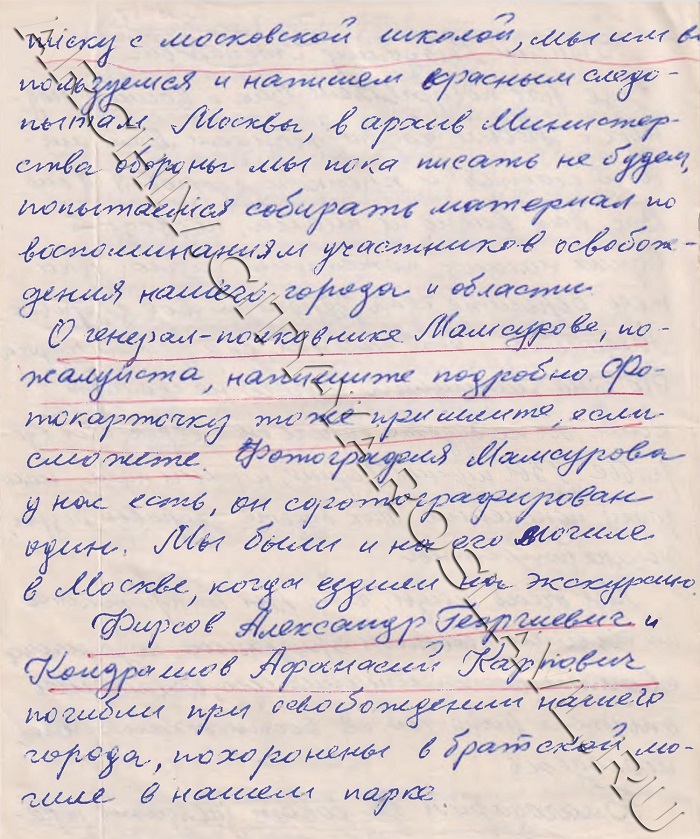 писку с московской школой, мы им вос
пользуемся и напишем красным следо-
пытам Москвы, в архив Министер-
ства обороны мы пока писать не будем,
попытаемся собирать материал по
воспоминаниям участников освобож-
дения нашего города и области.
О генерал-полковнике Мамсурове, по-
жалуйста, напишите подробно Фо-
токарточку тоже пришлите, если
сможете. Фотография Мамсурова
у нас есть, он сфотографирован
один. Мы были и на его могиле
в Москве, когда ездили на экскурсию.
Фирсов Александр Георгиевич и
Кондрашов Афанасий Карпович
погибли при освобождении нашего
города, похоронены в братской мо-
гиле в нашем парке.